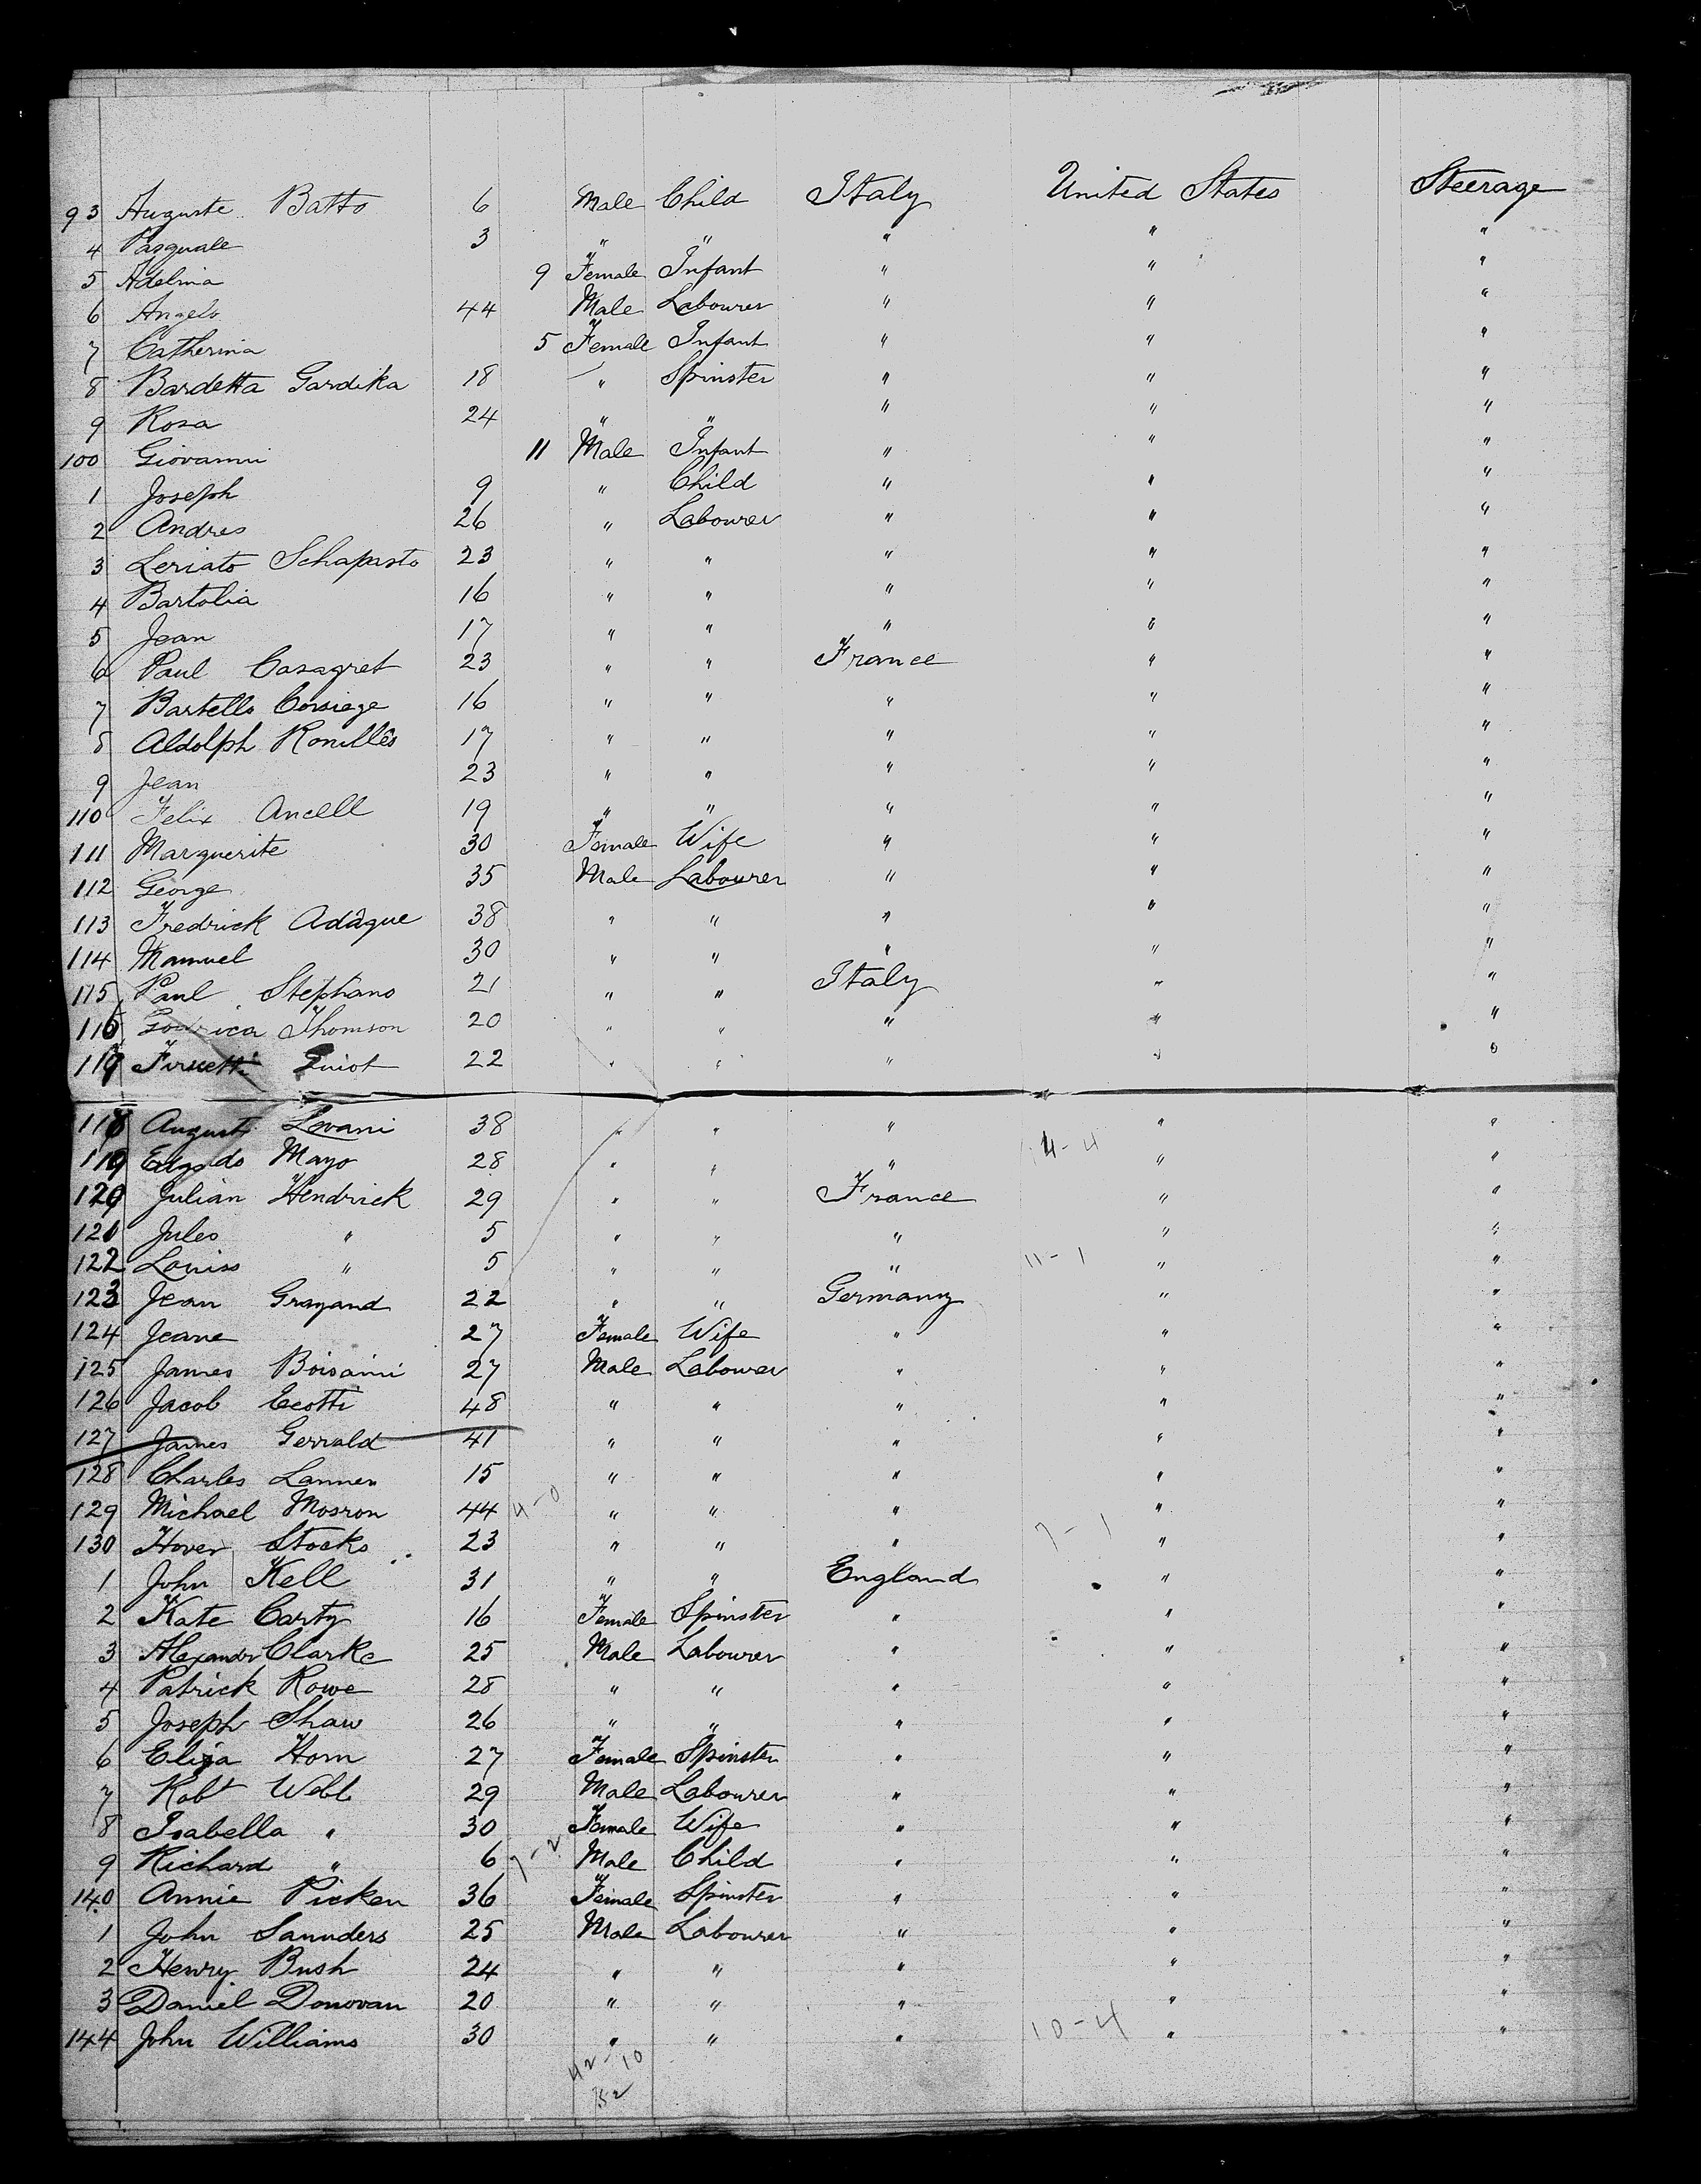 93 Auguste Batto 6 Male Child Italy United States Steerage
4 Pasquale 3 " " " " "
5 Adelina 9 Female Infant " " "
6 Angelo 44 Male Labourer " " "
7 Catherina 5 Female Infant " " "
8 Bardetta Gardika 18 " Spinster " " "
9 Rosa 24 " " " " "
100 Giovanni 11 Male Infant " " "
1 Joseph 9 " Child " " "
2 Andres 26 " Labourer " " "
3 Leriato Schaparto 23 " " " " "
4 Bartolia 16 " " " " "
5 Jean 17 " " " " "
6 Paul Casagret 23 " " France " "
7 Bartello Corsiege 16 " " " " "
8 Aldolph Ronillês 17 " " " " "
9 Jean 23 " " " " "
110 Felix Ancell 19 " " " " "
111 Marguerite 30 Female Wife " " "
112 George 35 Male Labourer " " "
113 Fredrick Adâque 38 " " " " "
114 Mamuel 30 " " " " "
115 Paul Stephano 21 " " Italy " "
116 Thomson 20 " " " " "
117 Guiot 22 " " " " "
118 August Levani 38 " " " " "
14-4
119 Mayo 28 " " " " "
120 Julian Hendrick 29 " " France " "
121 Jules " 5 " " " " "
122 Louiss " 5 " " " 11-1 " "
123 Jean Grayand 22 " " Germany " "
124 Jeane 27 Female Wife " " "
125 James Boisaini 27 Male Labourer " " "
126 Jacob Ecotti 48 " " " " "
127 James Gerrald 41 " " " " "
128 Charles Lannen 15 " " " " "
129 Michael Mosron 44 4-0 " " " " "
130 Hover Stocks 23 " " " 7-1 " "
1 John Kell 31 " " England " "
2 Kate Carty 16 Female Spinster " " "
3 Alexandr Clarke 25 Male Labourer " " "
4 Patrick Rowe 28 " " " " "
5 Joseph Shaw 26 " " " " "
6 Eliza Horn 27 Female Spinster " " "
7 Robt Webb 29 Male Labourer " " "
8 Isabella " 30 Female Wife " " "
9 Richard " 6 7-2 Male Child " " "
140 Annie Picken 36 Female Spinster " " "
1 John Saunders 25 Male Labourer " " "
2 Henry Bush 24 " " " " "
3 Daniel Donovan 20 " " " " "
144 John Williams 30 " " " 10-4 " "
42-10